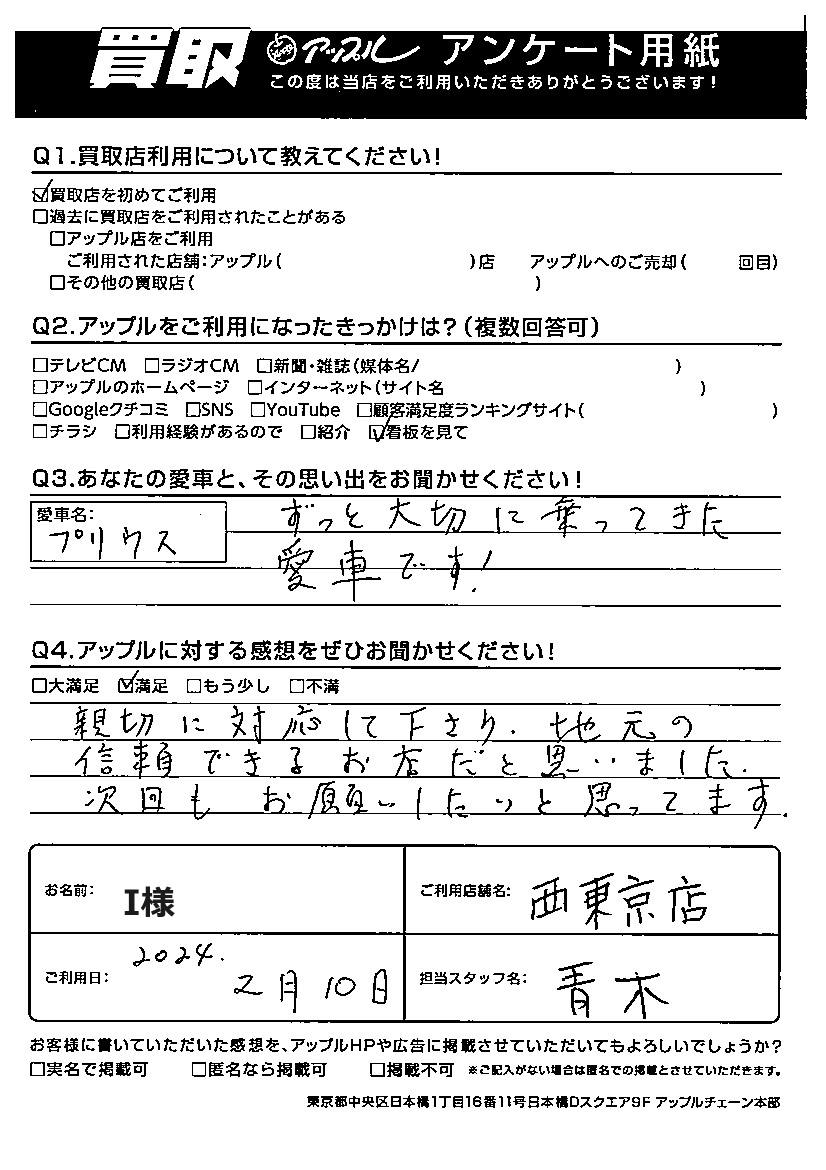 買取 アップル アンケート用紙
この度は当店をご利用いただきありがとうございます!
Q1.買取店利用について教えてください!
☑買取店を初めてご利用
□過去に買取店をご利用されたことがある
□アップル店をご利用
ご利用された店舗:アップル( )店 アップルへのご売却( 回目)
□その他の買取店( )
Q2.アップルをご利用になったきっかけは?(複数回答可)
□テレビCM □ラジオCM □新聞・雑誌(媒体名/ )
□アップルのホームページ □インターネット(サイト名 )
□Googleクチコミ □SNS □YouTube □顧客満足度ランキングサイト( )
□チラシ □利用経験があるので □紹介 ☑看板を見て
Q3.あなたの愛車と、その思い出をお聞かせください!
愛車名: プリウス
ずっと大切に乗ってきた
愛車です!
Q4.アップルに対する感想をぜひお聞かせください!
□大満足 ☑満足 □もう少し □不満
親切に対応して下さり.地元の
信頼できるお店だと思いました.
次回もお願いしたいと思ってます.
お名前: I様
ご利用店舗名: 西東京店
ご利用日: 2024. 2月10日
担当スタッフ名: 青木
お客様に書いていただいた感想を、アップルHPや広告に掲載させていただいてもよろしいでしょうか?
□実名で掲載可 □匿名なら掲載可 □掲載不可 ※ご記入がない場合は匿名での掲載とさせていただきます。
東京都中央区日本橋1丁目16番11号日本橋Dスクエア9F アップルチェーン本部